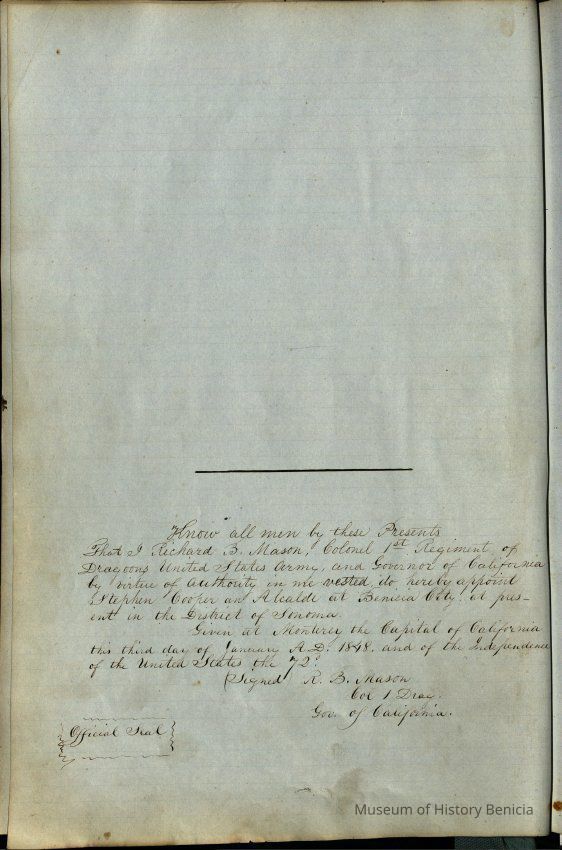 Know all men by these Presents
That I Richard B. Mason, Colonel 1st Regiment, of
Dragoons United States Army, and Governor of California
by virtue of authority in me vested, do hereby appoint
Stephen Cooper an Alcalde at Benicia City, at pres-
ent in the District of Sonoma.
Given at Monterey the Capital of California
this third day of January A.D. 1848. and of the Independence
of the United States the 72d
(Signed R. B. Mason
Col 1 Drag.
Gov. of California.
Official Seal
Museum of History Benicia